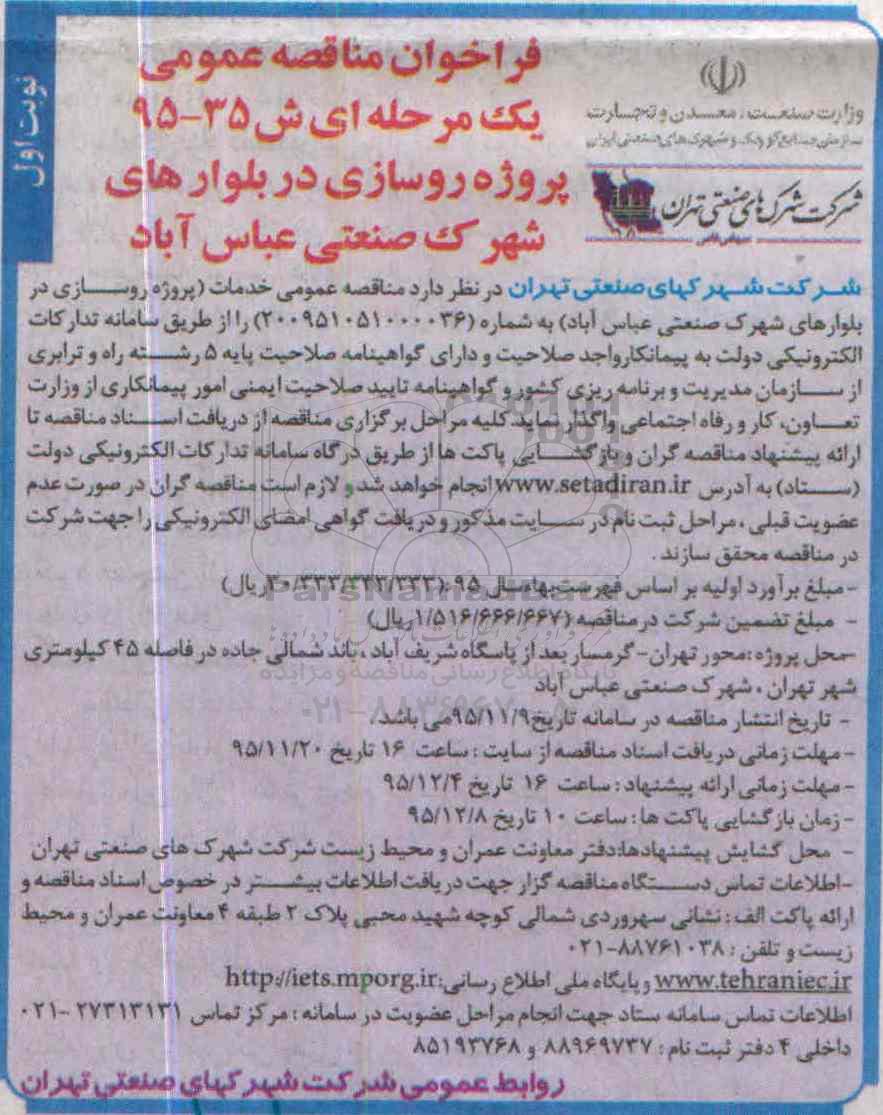 نوبت اول
فراخوان مناقصه عمومی
یک مرحله ای ش ۳۵-۹۵
پروژه روسازی در بلوار های
شهرک صنعتی عباس آباد
وزارت صنعت، معدن و تجارت
سازمان صنایع کوچک و شهرک های صنعتی ایران
شرکت شهرک های صنعتی تهران
سهامی خاص
شرکت شهرکهای صنعتی تهران در نظر دارد مناقصه عمومی خدمات (پروژه روسازی در
بلوارهای شهرک صنعتی عباس آباد) به شماره (۲۰۰۹۵۱۰۵۱۰۰۰۰۳۶) را از طریق سامانه تدارکات
الکترونیکی دولت به پیمانکارواجد صلاحیت و دارای گواهینامه صلاحیت پایه ۵ رشته راه و ترابری
از سازمان مدیریت و برنامه ریزی کشور و گواهینامه تایید صلاحیت ایمنی امور پیمانکاری از وزارت
تعاون، کار و رفاه اجتماعی واگذار نماید. کلیه مراحل برگزاری مناقصه از دریافت اسناد مناقصه تا
ارائه پیشنهاد مناقصه گران و بازگشایی پاکت ها از طریق درگاه سامانه تدارکات الکترونیکی دولت
(ستاد) به آدرس www.setadiran.ir انجام خواهد شد و لازم است مناقصه گران در صورت عدم
عضویت قبلی ، مراحل ثبت نام در سایت مذکور و دریافت گواهی امضای الکترونیکی را جهت شرکت
در مناقصه محقق سازند .
- مبلغ برآورد اولیه بر اساس فهرست بهای سال ۹۵ (۳۰/۳۳۳/۳۳۳/۳۳۳ ریال)
- مبلغ تضمین شرکت در مناقصه (۱/۵۱۶/۶۶۶/۶۶۷ ریال)
- محل پروژه : محور تهران - گرمسار بعد از پاسگاه شریف آباد ، باند شمالی جاده در فاصله ۴۵ کیلومتری
شهر تهران ، شهرک صنعتی عباس آباد
- تاریخ انتشار مناقصه در سامانه تاریخ ۹۵/۱۱/۹ می باشد.
- مهلت زمانی دریافت اسناد مناقصه از سایت : ساعت ۱۶ تاریخ ۹۵/۱۱/۲۰
- مهلت زمانی ارائه پیشنهاد : ساعت ۱۶ تاریخ ۹۵/۱۲/۴
- زمان بازگشایی پاکت ها : ساعت ۱۰ تاریخ ۹۵/۱۲/۸
- محل گشایش پیشنهادها: دفتر معاونت عمران و محیط زیست شرکت شهرک های صنعتی تهران
- اطلاعات تماس دستگاه مناقصه گزار جهت دریافت اطلاعات بیشتر در خصوص اسناد مناقصه و
ارائه پاکت الف : نشانی سهروردی شمالی کوچه شهید محبی پلاک ۲ طبقه ۴ معاونت عمران و محیط
زیست و تلفن : ۸۸۷۶۱۰۳۸-۰۲۱
www.tehraniec.ir و پایگاه ملی اطلاع رسانی: http://iets.mporg.ir
اطلاعات تماس سامانه ستاد جهت انجام مراحل عضویت در سامانه : مرکز تماس ۲۷۳۱۳۱۳۱-۰۲۱
داخلی ۴ دفتر ثبت نام : ۸۸۹۶۹۷۳۷ و ۸۵۱۹۳۷۶۸
روابط عمومی شرکت شهرکهای صنعتی تهران
ParsNamad
پایگاه اطلاع رسانی مناقصه و مزایده